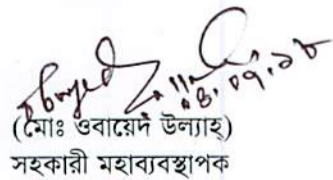 ০৪.০৭.১৮
(মোঃ ওবায়েদ উল্যাহ)
সহকারী মহাব্যবস্থাপক